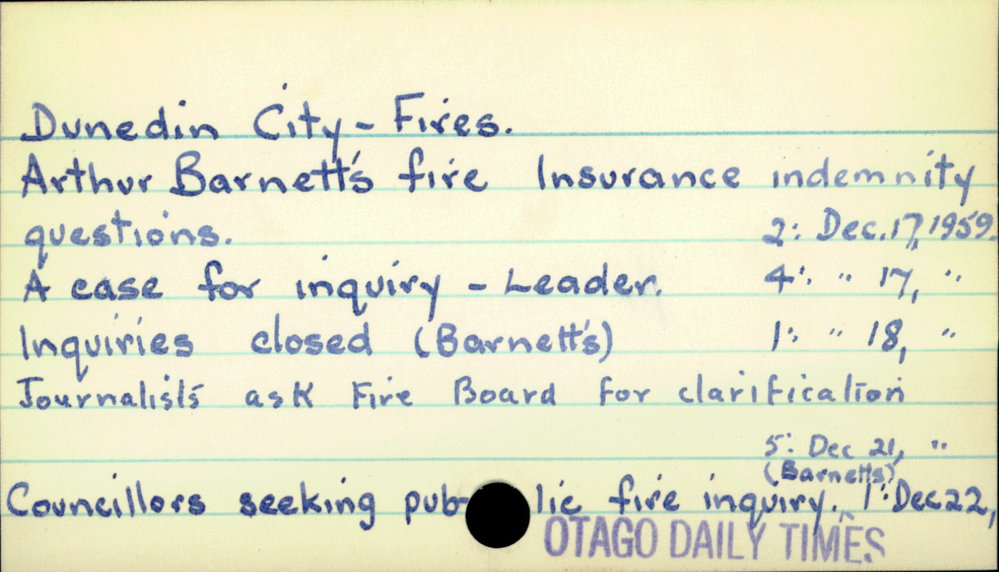 Dunedin City - Fires.
Arthur Barnett's fire Insurance indemnity
questions. 2: Dec. 17, 1959.
A case for inquiry - Leader. 4: " 17, "
Inquiries closed (Barnett's) 1: " 18, "
Journalists ask Fire Board for clarification
5: Dec 21, "
(Barnetts)
Councillors seeking pub- lic fire inquiry. 1: Dec 22,
OTAGO DAILY TIMES